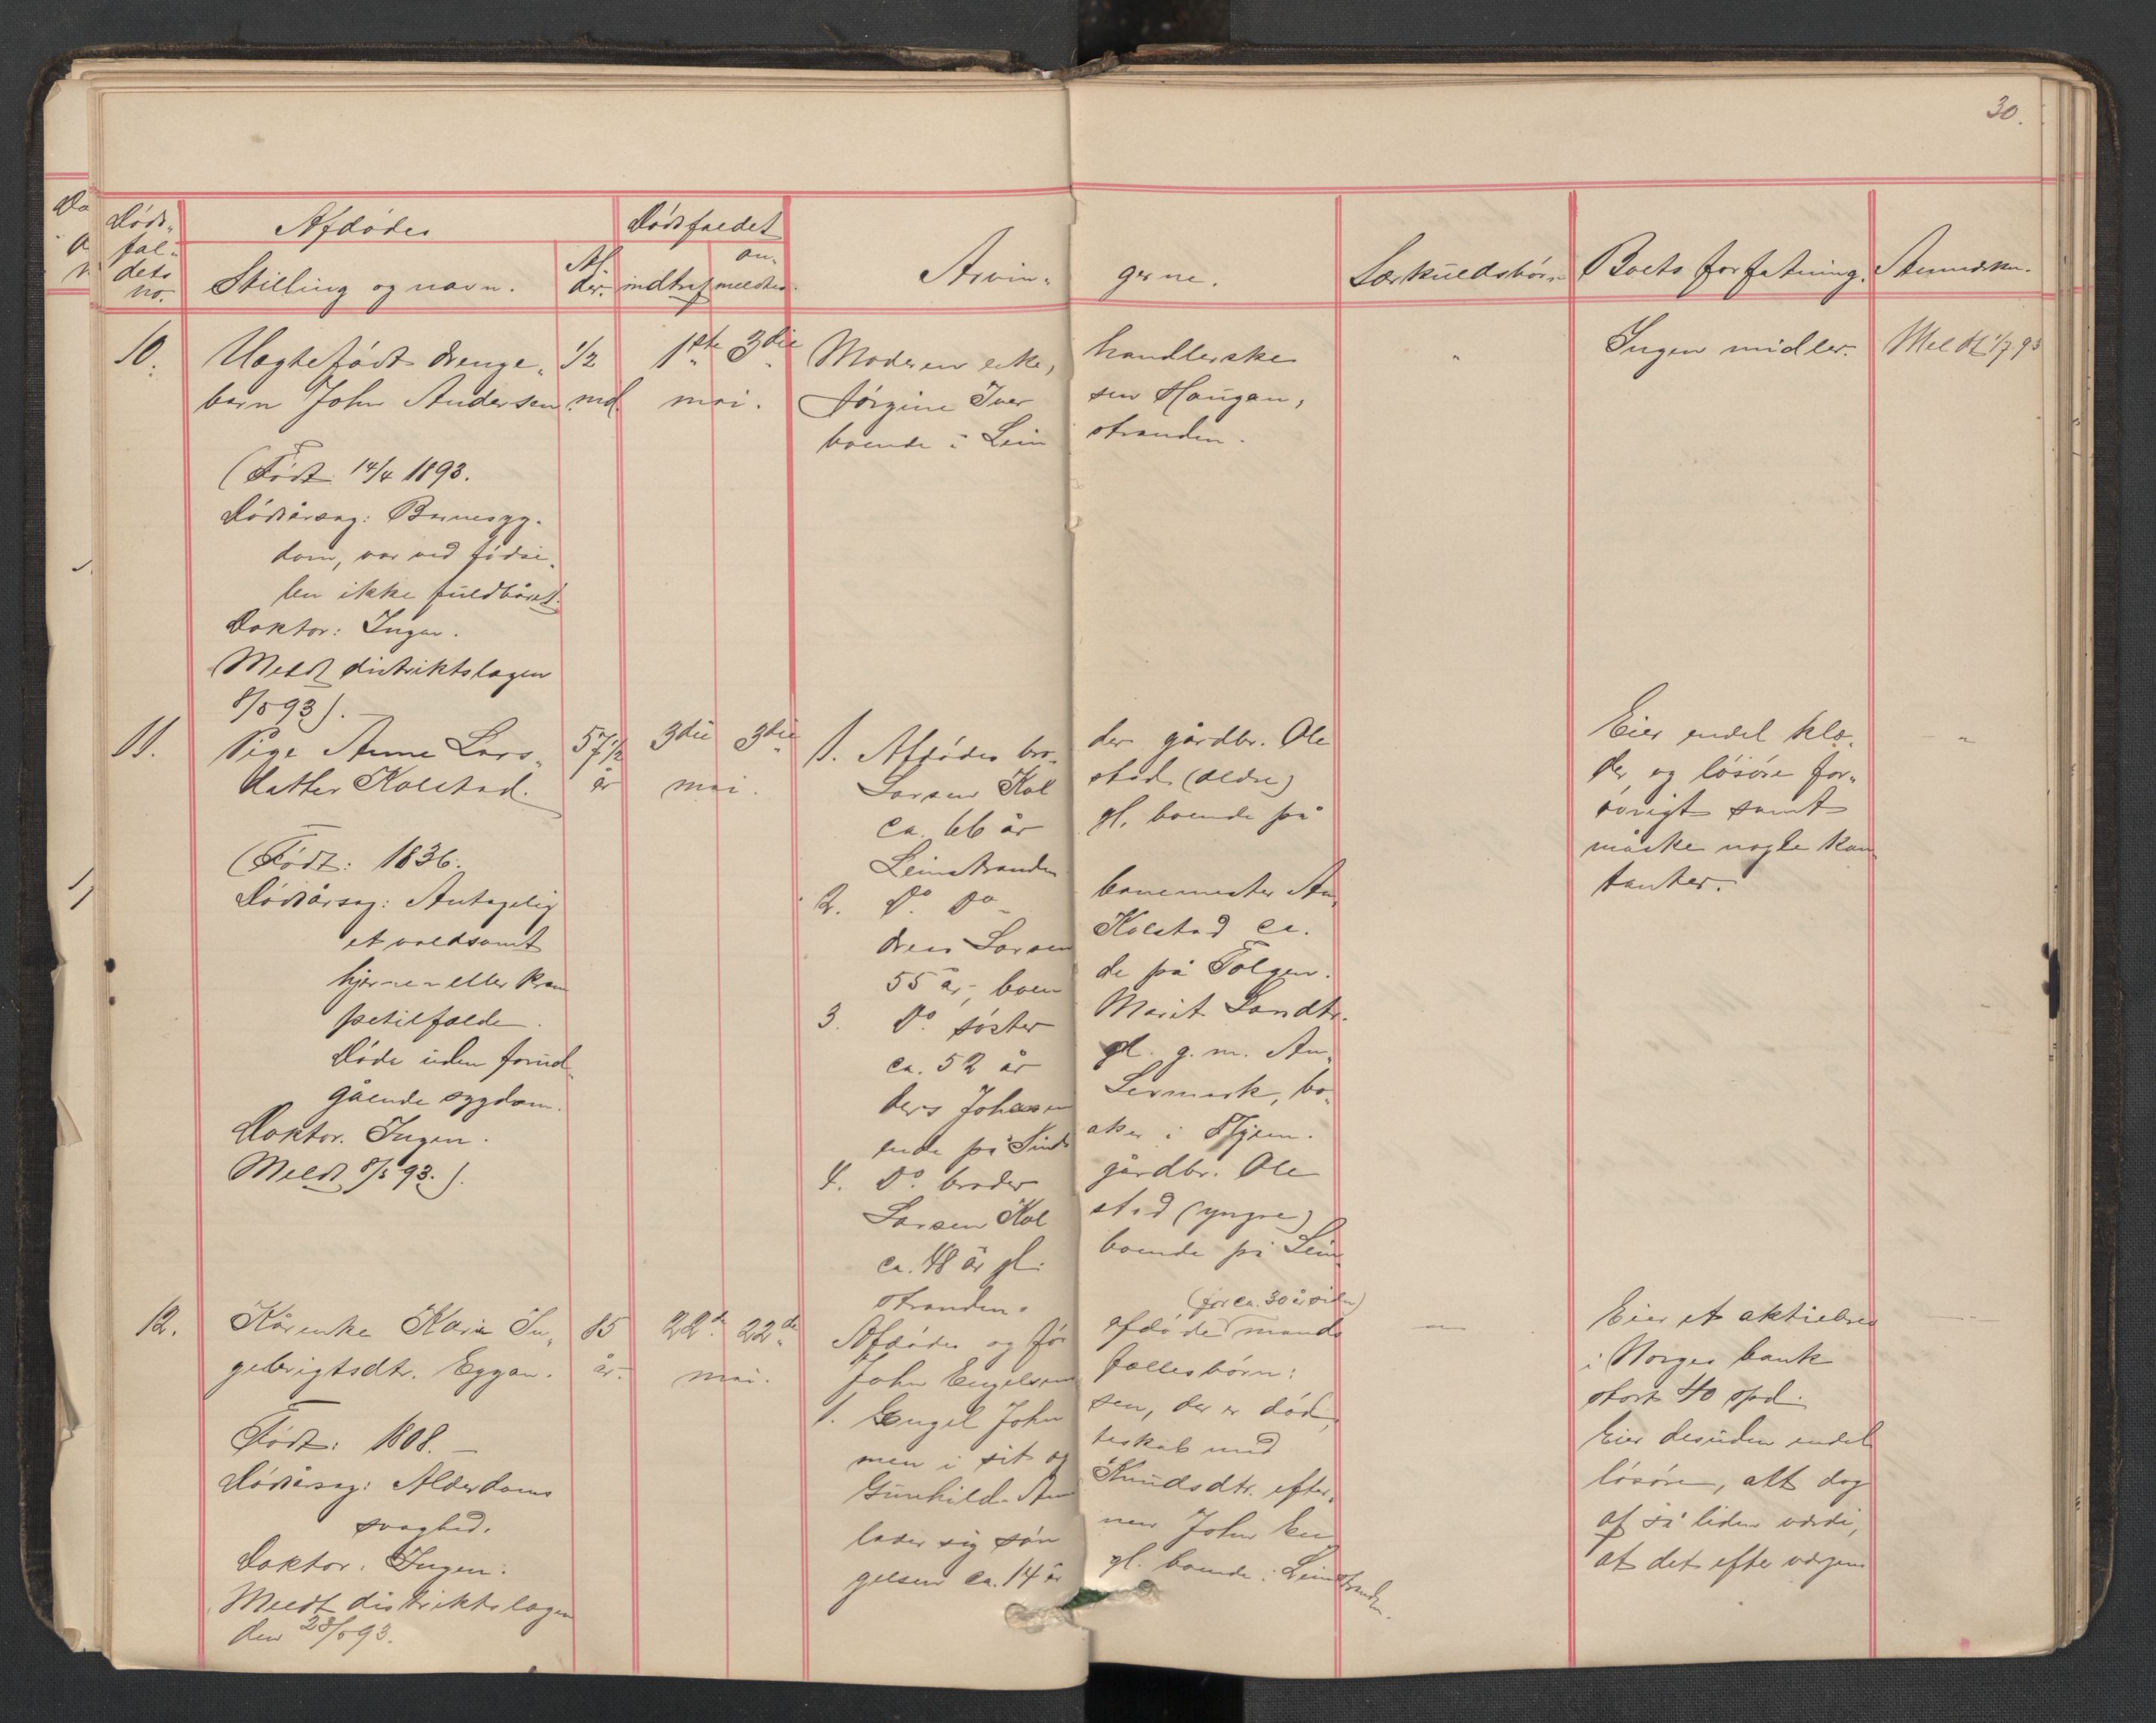 30.
Døds-
fal-
dets
no.
Afdødes
Stilling og navn.
Al-
der.
Dødsfaldet
indtraf
an-
meldtes.
Arvin- gerne.
Særkuldsbørn
Boets forfatning.
Anmærkn.
10.
Uægtefødt drenge-
barn John Andersen
(Født 14/4 1893.
Dødsårsag: Barnesyg-
dom, var ved fødse-
len ikke fuldbåret.
Doktor: Ingen.
Meldt distriktslægen
8/5 93).
1/2
md.
1ste 3die
mai.
Moderen enke, handlerske
Jørgine Iver sen Haugan,
boende i Lein stranden.
"
Ingen midler.
Meldt 1/7 93
11.
Pige Anne Lars-
datter Kolstad.
(Født: 1836.
Dødsårsag: Antagelig
et voldsomt
hjerne- eller kram
petilfælde.
Døde uden forud-
gående sygdom.
Doktor. Ingen.
Meldt 8/5 93.).
57 1/2
år
3die 3die
mai.
1. Afdødes bro- der gårdbr. Ole
Larsen Kol stad (ældre)
ca. 66 år gl. boende på
Leinstranden
2. Do. Do- banemester An-
dreas Larsen Kolstad ca.
55 år, boen de på Tolgen.
3. Do. søster Marit Larsdtr.
ca. 52 år gl. g. m. An-
ders Johnsen Lermark, bo-
ende på Sinds aker i Hjem.
4. Do. broder gårdbr. Ole
Larsen Kol stad (yngre)
ca. 48 år gl. boende på Lein-
stranden.
Eier endel klæ-
der og løsøre for-
øvrigt samt
måske nogle kon-
tanter.
"
12.
Kårenke Kari In-
gebrigtsdtr. Eggan.
Født: 1808. -
Dødsårsag: Alderdoms
svaghed.
Doktor. Ingen.
Meldt distriktslægen
den 23/5 93.
85
år.
22de 22de
mai.
(for ca. 30 år siden)
Afdødes og før afdøde mands
John Engelsens fællesbørn:
1. Engel John sen, der er død,
men i sit æg teskab med
Gunhild An Knudsdtr. efter-
lader sig søn nen John En
gelsen ca. 14 år gl. boende i Leinstranden.
—
Eier et aktiebrev
i Norges bank
stort 40 spd.
Eier desuden endel
løsøre, alt dog
af så liden værdi,
at det efter værgens
—